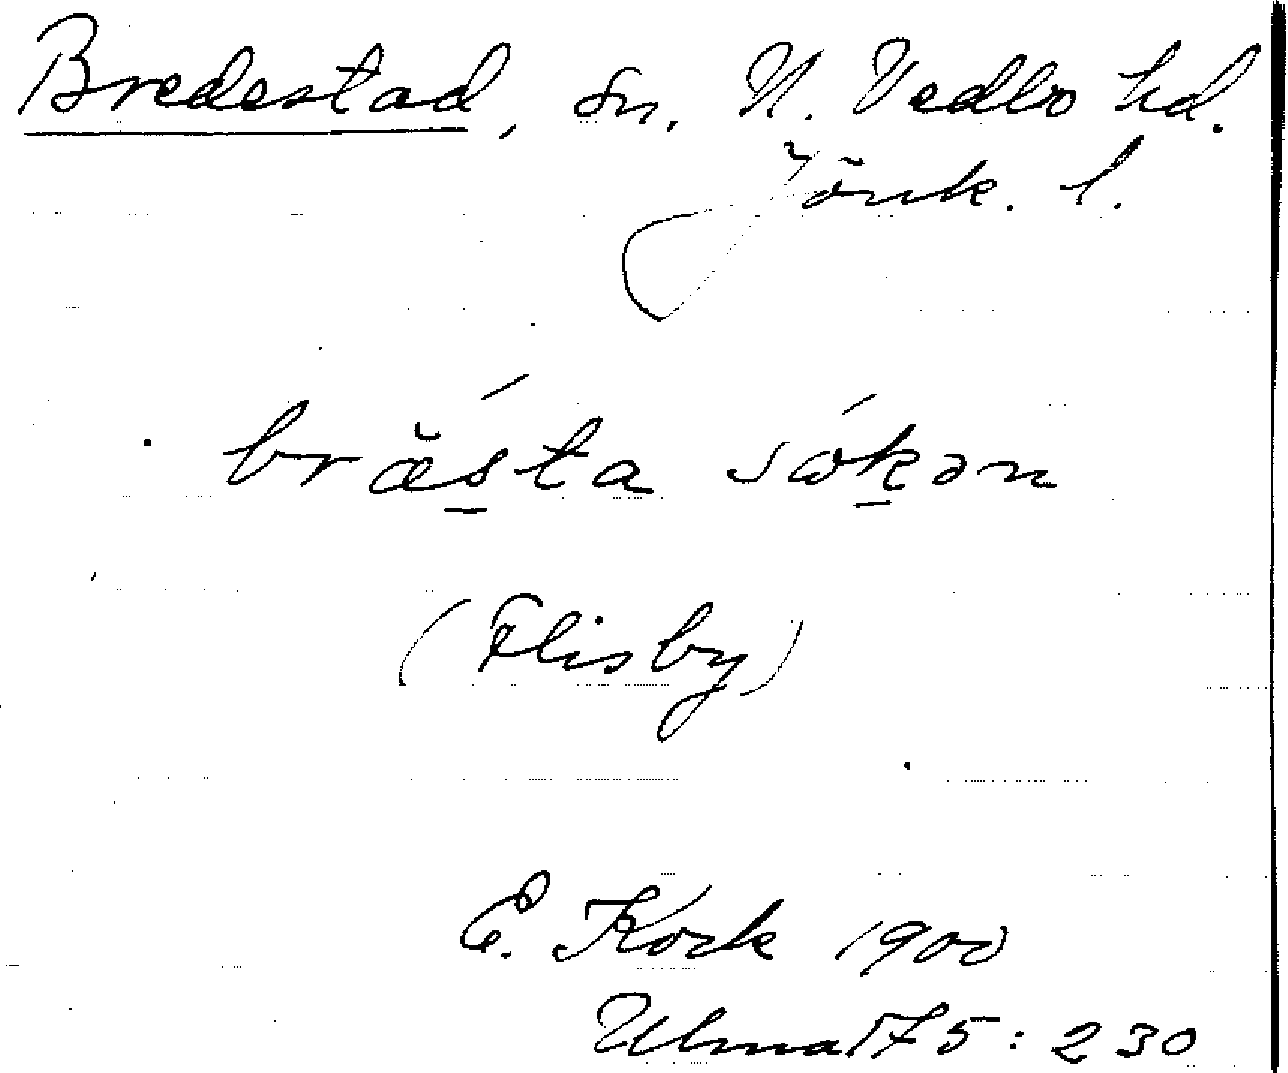 Bredestad, sn, N. Vedbo hd.
Jönk. l.
bræ̆́s̱ta sók̲ən
(Flisby)
E. Kock 1900
Ulma 175:230